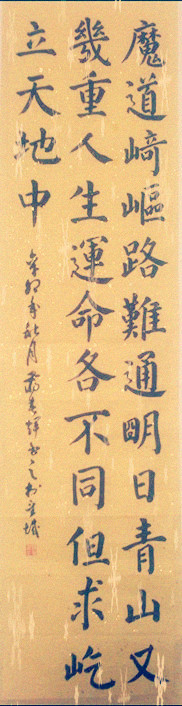 魔道崎嶇路難通明日青山又
幾重人生運命各不同但求屹
立天地中
辛卯年秋月